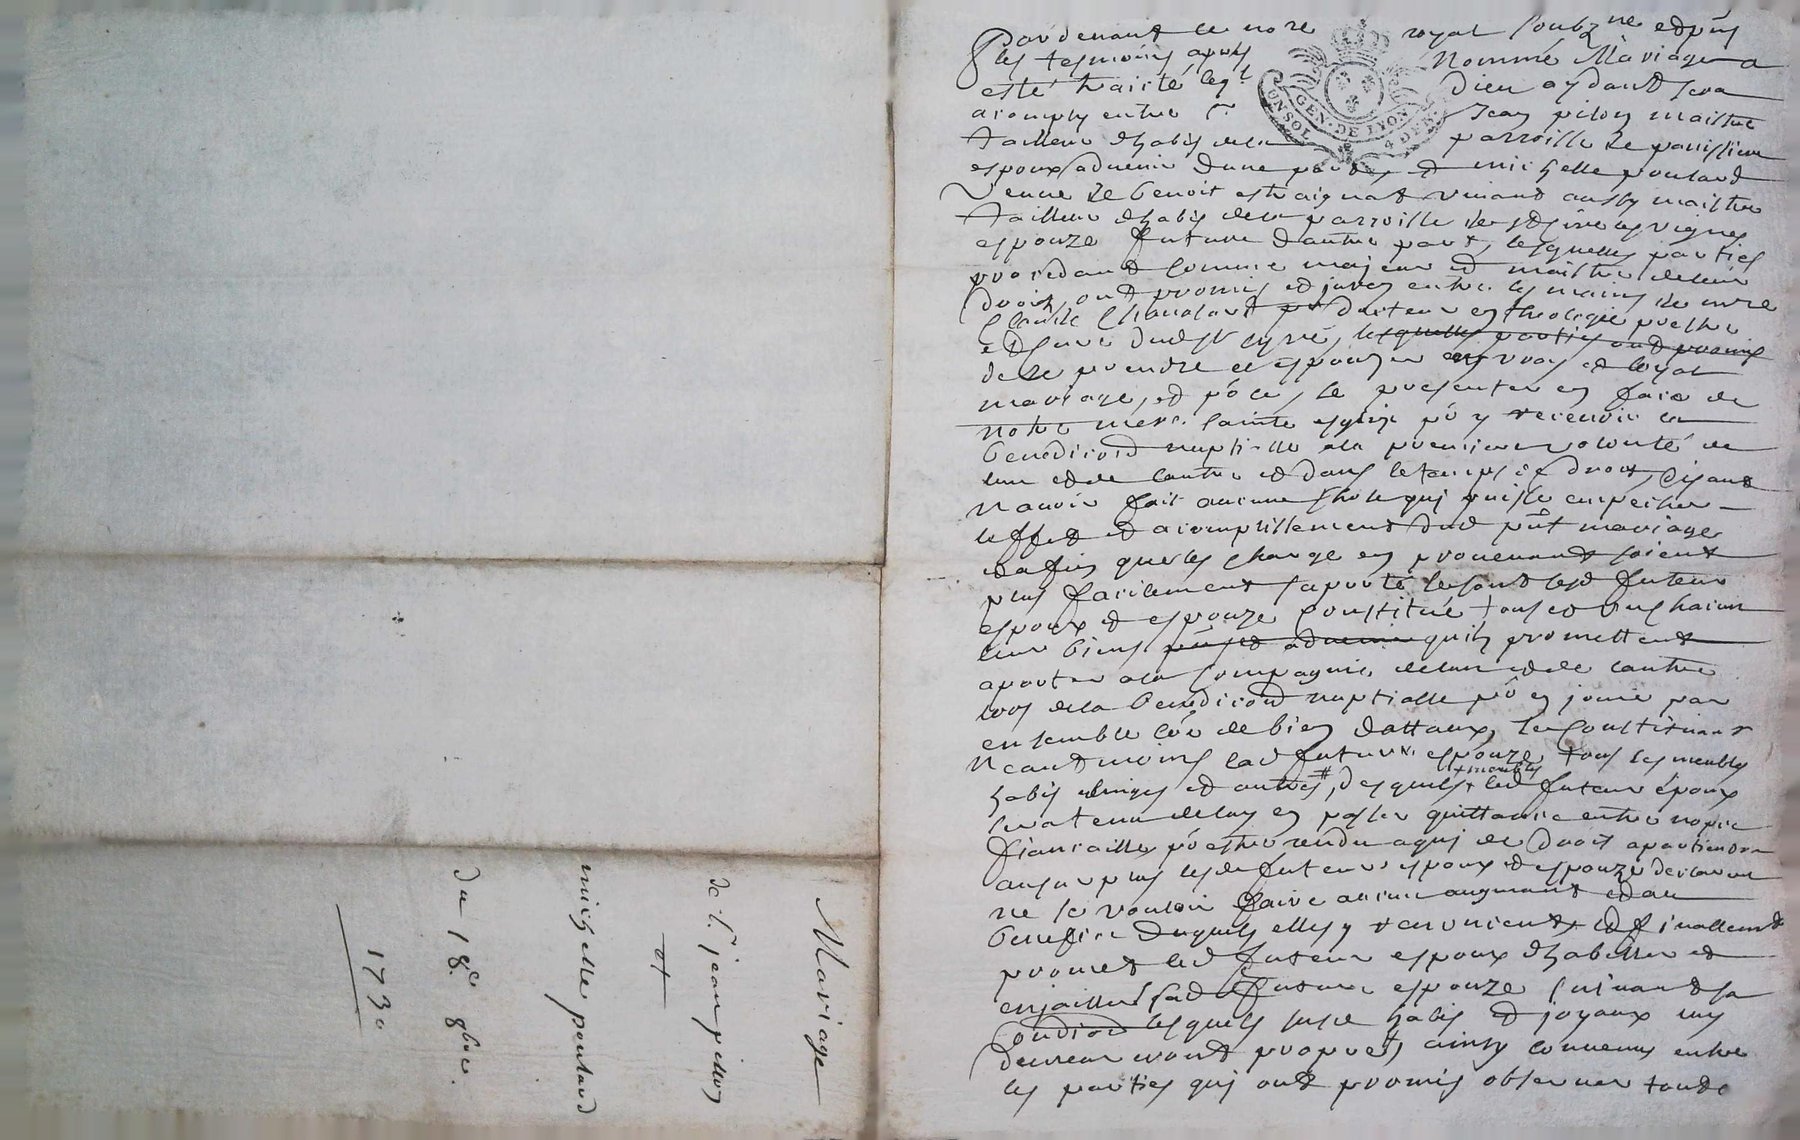 Pardevant le no.re royal soubz.ne et p.ns
les tesmoins apres nommé Mariage a
esté traicté leq.l Dieu aydant sera
acomply entre s.r Jean pilon maistre
tailleur d'habis de la parroisse de
espoux advenir d'une part, et michelle poulard
veuve de benoit vivand aussy maistre
tailleur d'habis de la parroisse de
espouze future d'autre part, lesquelles parties
procedant comme majeur et maistre de leur
droit, ont promis et jurez entre les mains de m.re
Claude docteur en theologie prestre
et curé dud. st cyre, lesquelles parties ont promis
de se prendre et espouzer en vray et loyal
mariage, et p.r ce, se presenter en face de
notre mere sainte esglize p.r y recevoir la
benediction nuptialle a la premiere volonté de
lun et de lautre et dans le temps de droit, disant
n'avoir fait aucune chose qui puisse empecher
leffet et acomplissement dud. p.nt mariage
et afin que les charge en provenant soient
plus facilement suporté se sont lesd. futeur
espoux et espouze constitué tous et un chacun
leur biens p.ns et advenir quils promettent
aporter a la compagnie de lun et de lautre
lors de la benediction nuptialle p.r en jouir par
ensemble co.e de bien dottaux, se constituant
neantmoins lad. future espouze tous ses meubles
habis linges et autres #, desquels + meubles led. futeur époux
sera tenu de luy en passer quittance entre nopce
fiancailles p.r estre rendu a qui de droit apartiendra
au surplus lesd. futeur espoux et espouze declarent
ne se vouloir faire aucun augment et au
benefice duquels elles y renoncient et finallement
promet led. futeur espoux d'habiller et
enjailler sad. future espouze suivant sa
condition lesquels susd. habis et joyaux luy
demeureront propres, ainsy convenus entre
les parties qui ont promis observer tout ce
GEN. DE LYON
4 DEN.
Mariage
de s.r jean pillon
et
michelle poulard
du 18.e 9bre.
1730